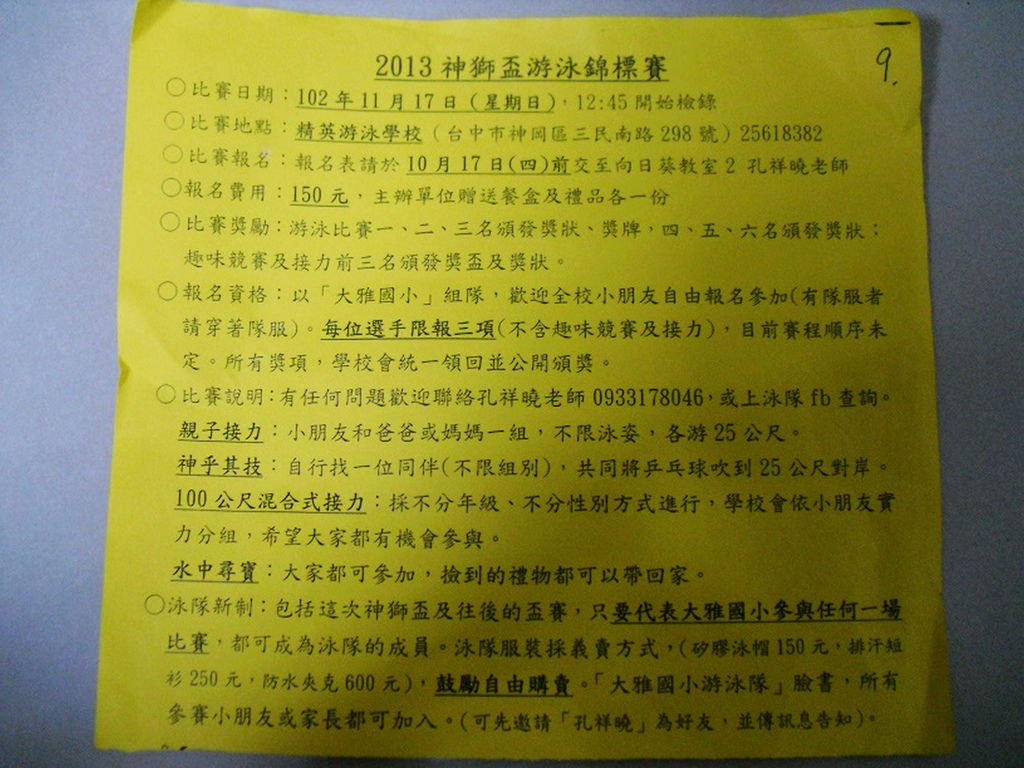 9.
2013 神獅盃游泳錦標賽
○比賽日期：102 年 11 月 17 日（星期日），12:45 開始檢錄
○比賽地點：精英游泳學校（台中市神岡區三民南路 298 號）25618382
○比賽報名：報名表請於 10 月 17 日(四)前交至向日葵教室 2 孔祥曉老師
○報名費用：150 元，主辦單位贈送餐盒及禮品各一份
○比賽獎勵：游泳比賽一、二、三名頒發獎狀、獎牌，四、五、六名頒發獎狀；
趣味競賽及接力前三名頒發獎盃及獎狀。
○報名資格：以「大雅國小」組隊，歡迎全校小朋友自由報名參加(有隊服者
請穿著隊服)。每位選手限報三項(不含趣味競賽及接力)，目前賽程順序未
定。所有獎項，學校會統一領回並公開頒獎。
○比賽說明：有任何問題歡迎聯絡孔祥曉老師 0933178046，或上泳隊 fb 查詢。
親子接力：小朋友和爸爸或媽媽一組，不限泳姿，各游 25 公尺。
神乎其技：自行找一位同伴(不限組別)，共同將乒乓球吹到 25 公尺對岸。
100 公尺混合式接力：採不分年級、不分性別方式進行，學校會依小朋友實
力分組，希望大家都有機會參與。
水中尋寶：大家都可參加，撿到的禮物都可以帶回家。
○泳隊新制：包括這次神獅盃及往後的盃賽，只要代表大雅國小參與任何一場
比賽，都可成為泳隊的成員。泳隊服裝採義賣方式，(矽膠泳帽 150 元，排汗短
衫 250 元，防水夾克 600 元)，鼓勵自由購賣。「大雅國小游泳隊」臉書，所有
參賽小朋友或家長都可加入。(可先邀請「孔祥曉」為好友，並傳訊息告知)。